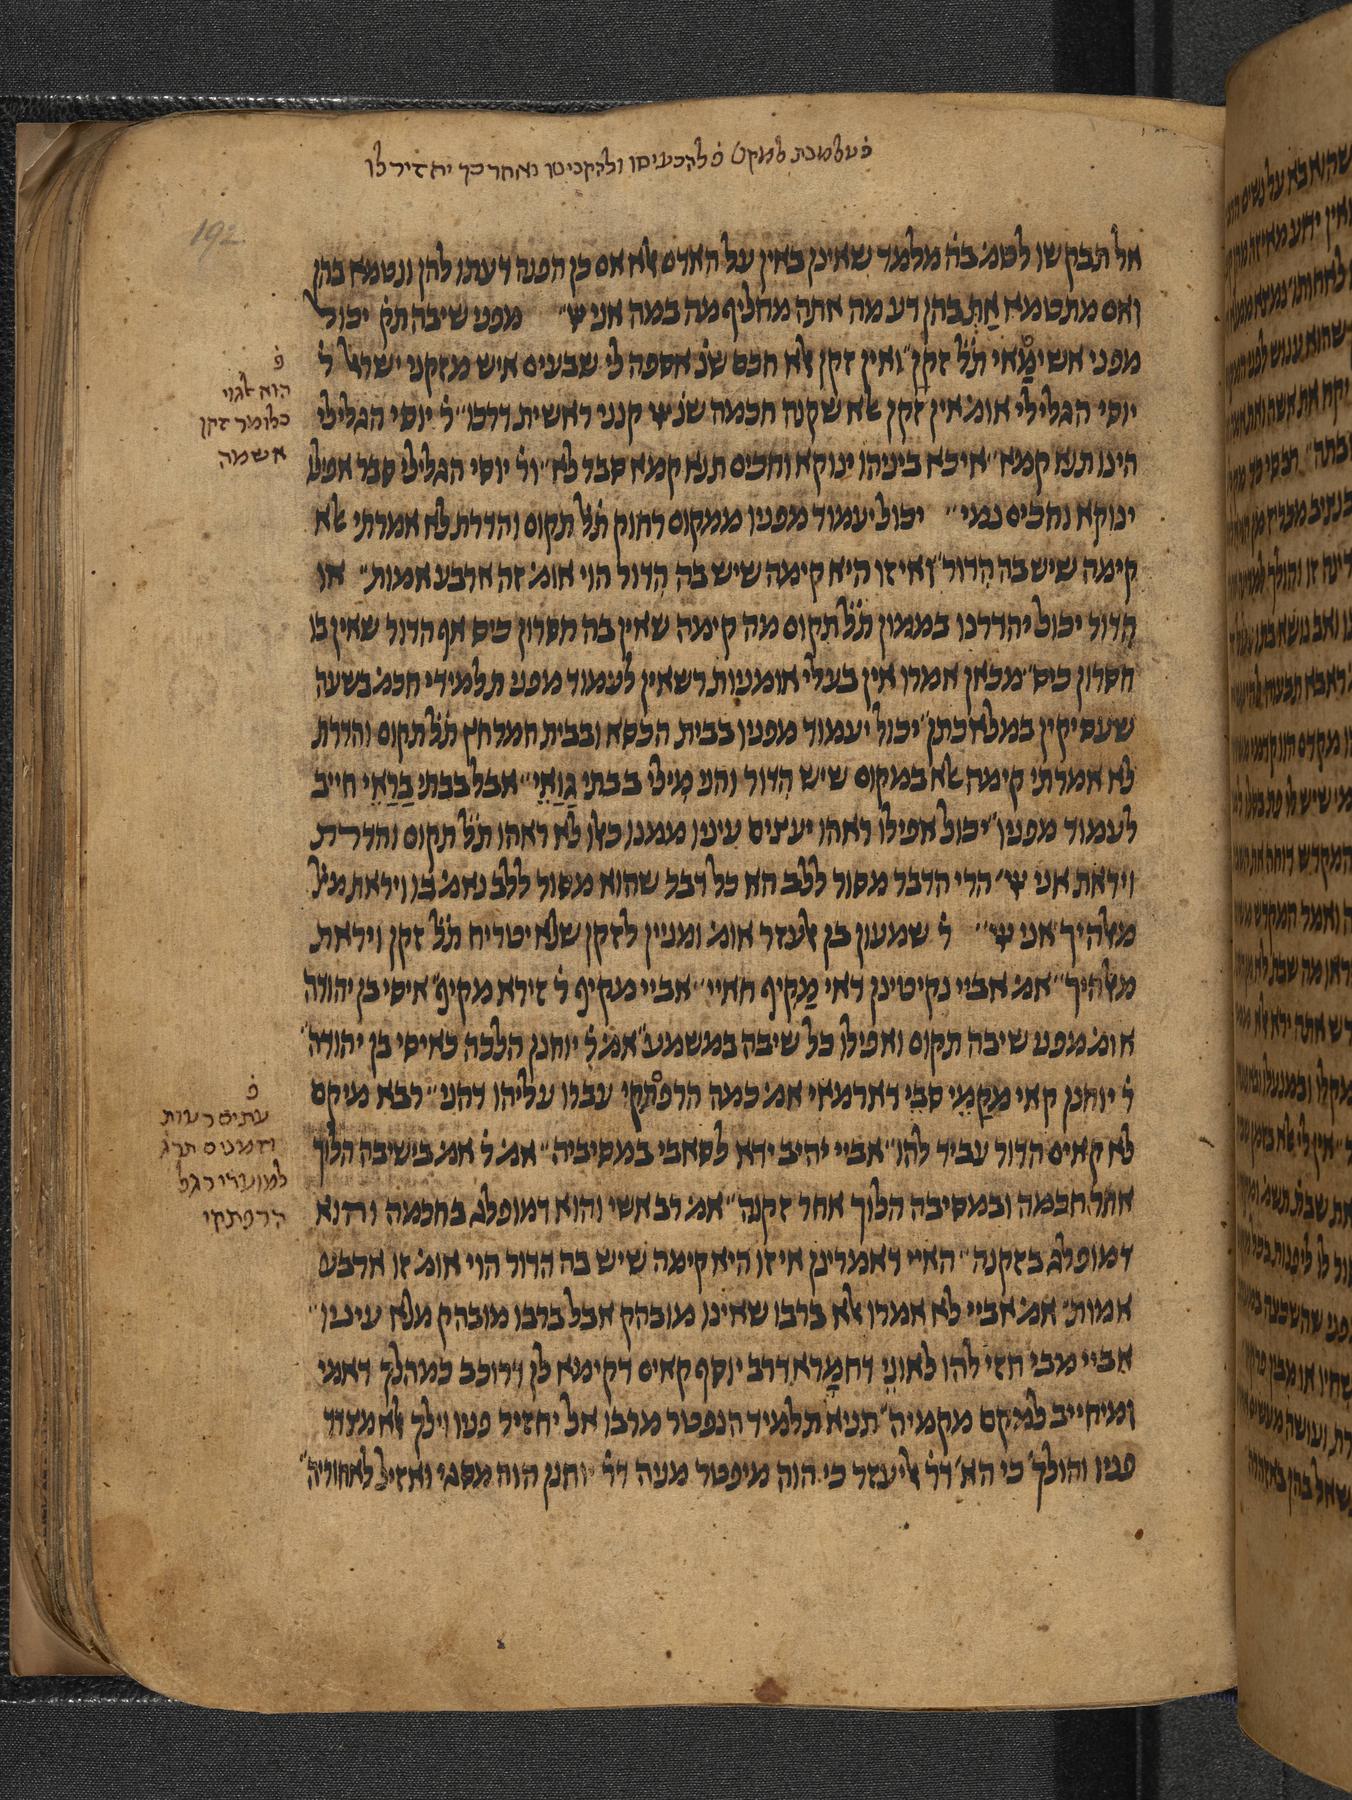 פ׳ להכעיסו ולהקניטו ואחר כך יחזיר לו
192
אל תבקשו לטמ׳ בה׳ מלמד שאינן באין על האדם אלא אם כן הפנה דעתו להן ונטמא בהן
ואם מתטמא אַתְּ בהן דע מה אתה מחליף מה במה אני ייי׳ מפני שיבה תק׳ יכול
מפני אשימַאי ת״ל זקן ״ ואין זקן אלא חכם שנ׳ אספה לי שבעים איש מזקני ישראל ר׳
יוסי הגלילי אומ׳ אין זקן אלא שקנה חכמה שנ׳ ייי קנני ראשית דרכו ״ ר׳ יוסי הגלילי
היינו תנא קמא ״ איכא ביניהו ינוקא וחכים תנא קמא סבר לא ״ ור׳ יוסי הגלילי סבר אפילו
ינוקא וחכים נמי ״ יכול יעמוד מפניו ממקום רחוק ת״ל תקום והדרת לא אמרתי אלא
קימה שיש בה הדור ״ ואיזו היא קימה שיש בה הִדור הוי אומ׳ זה ארבע אמות ״ או
הִדור יכול יהדרנו בממון ת״ל תקום מה קימה שאין בה חסרון כיס אף הדור שאין בו
חסרון כיס ״ מכאן אמרו אין בעלי אומניות רשאין לעמוד מפני תלמידי חכמ׳ בשעה
שעסיקין במלאכתן ״ יכול יעמוד מפניו בבית הכסא ובבית המרחץ ת״ל תקום והדרת
לא אמרתי קימה אלא במקום שיש הִדור והני מִילי בבתי גַוָאֵי ״ אבל בבתי בַרַאֵי חייב
לעמוד מפניו ״ יכול אפילו ראהו יעצים עיניו ממנו כאלו לא ראהו ת״ל תקום והדרת
ויראת אני ייי׳ הרי הדבר מסור ללב הא כל דבר שהוא מסור ללב נאמ׳ בו ויראת מאל׳
מאלהיך אני ייי ״ ר׳ שמעון בן אלעזר אומ׳ ומניין לזקן שלא יטריח ת״ל זקן ויראת
מאלהיך ״ אמ׳ אביי נקיטינן דאי מַקיף חאיי ״ אביי מקיף ר׳ זירא מקיף ״ איסי בן יהודה
אומ׳ מפני שיבה תקום ואפילו כל שיבה במשמע ״ אמ׳ ר׳ יוחנן הלכה כאיסי בן יהודה ״
ר׳ יוחנן קאי מִקַמֵי סבֵי דארמאי אמ׳ כמה הרפתקי עברו עליהו דהני ״ רבא מיקם
לא קאים הדור עביד להו ״ אביי יהיב ידא לסאבי במסיביה ״ אמ׳ ר׳ אמ׳ בישיבה הלוך
אחר חכמה ובמסיבה הלוך אחר זקנה ״ אמ׳ רב אשי והוא דמופלג בחכמה והוא
דמופלג בזקנה ״ האיי דאמרינן איזו היא קימה שיש בה הדור הוי אומ׳ זו ארבע
אמות ״ אמ׳ אביי לא אמרו אלא ברבו שאינו מובהק אבל ברבו מובהק מלא עיניו ״
אביי מכי חזי להו לאוני דחמָרא דרב יוסף קאים דקימא לן דרוכב כמהלך דאמי
ומיחייב למִקם מקמיה ״ תניא תלמיד הנפטר מרבו אל יחזיר פניו וילך אלא מצדד
פניו והולך ״ כי הא׳ דר׳ אליעזר כי הוה מיפטר מעה דר׳ יוחנן הוה מסגי ואזיל לאחוריה ״
פ׳
הוא לגוי
כלומר זקן
אשמה
פ׳
עתים רעות
וזמנים תרג׳
למועדי רגל
הרפתקי